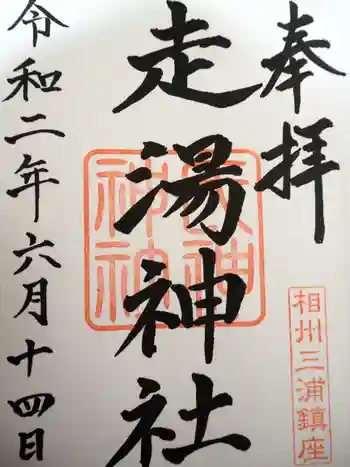 奉拝
相州三浦鎮座
走湯神社
令和二年六月十四日